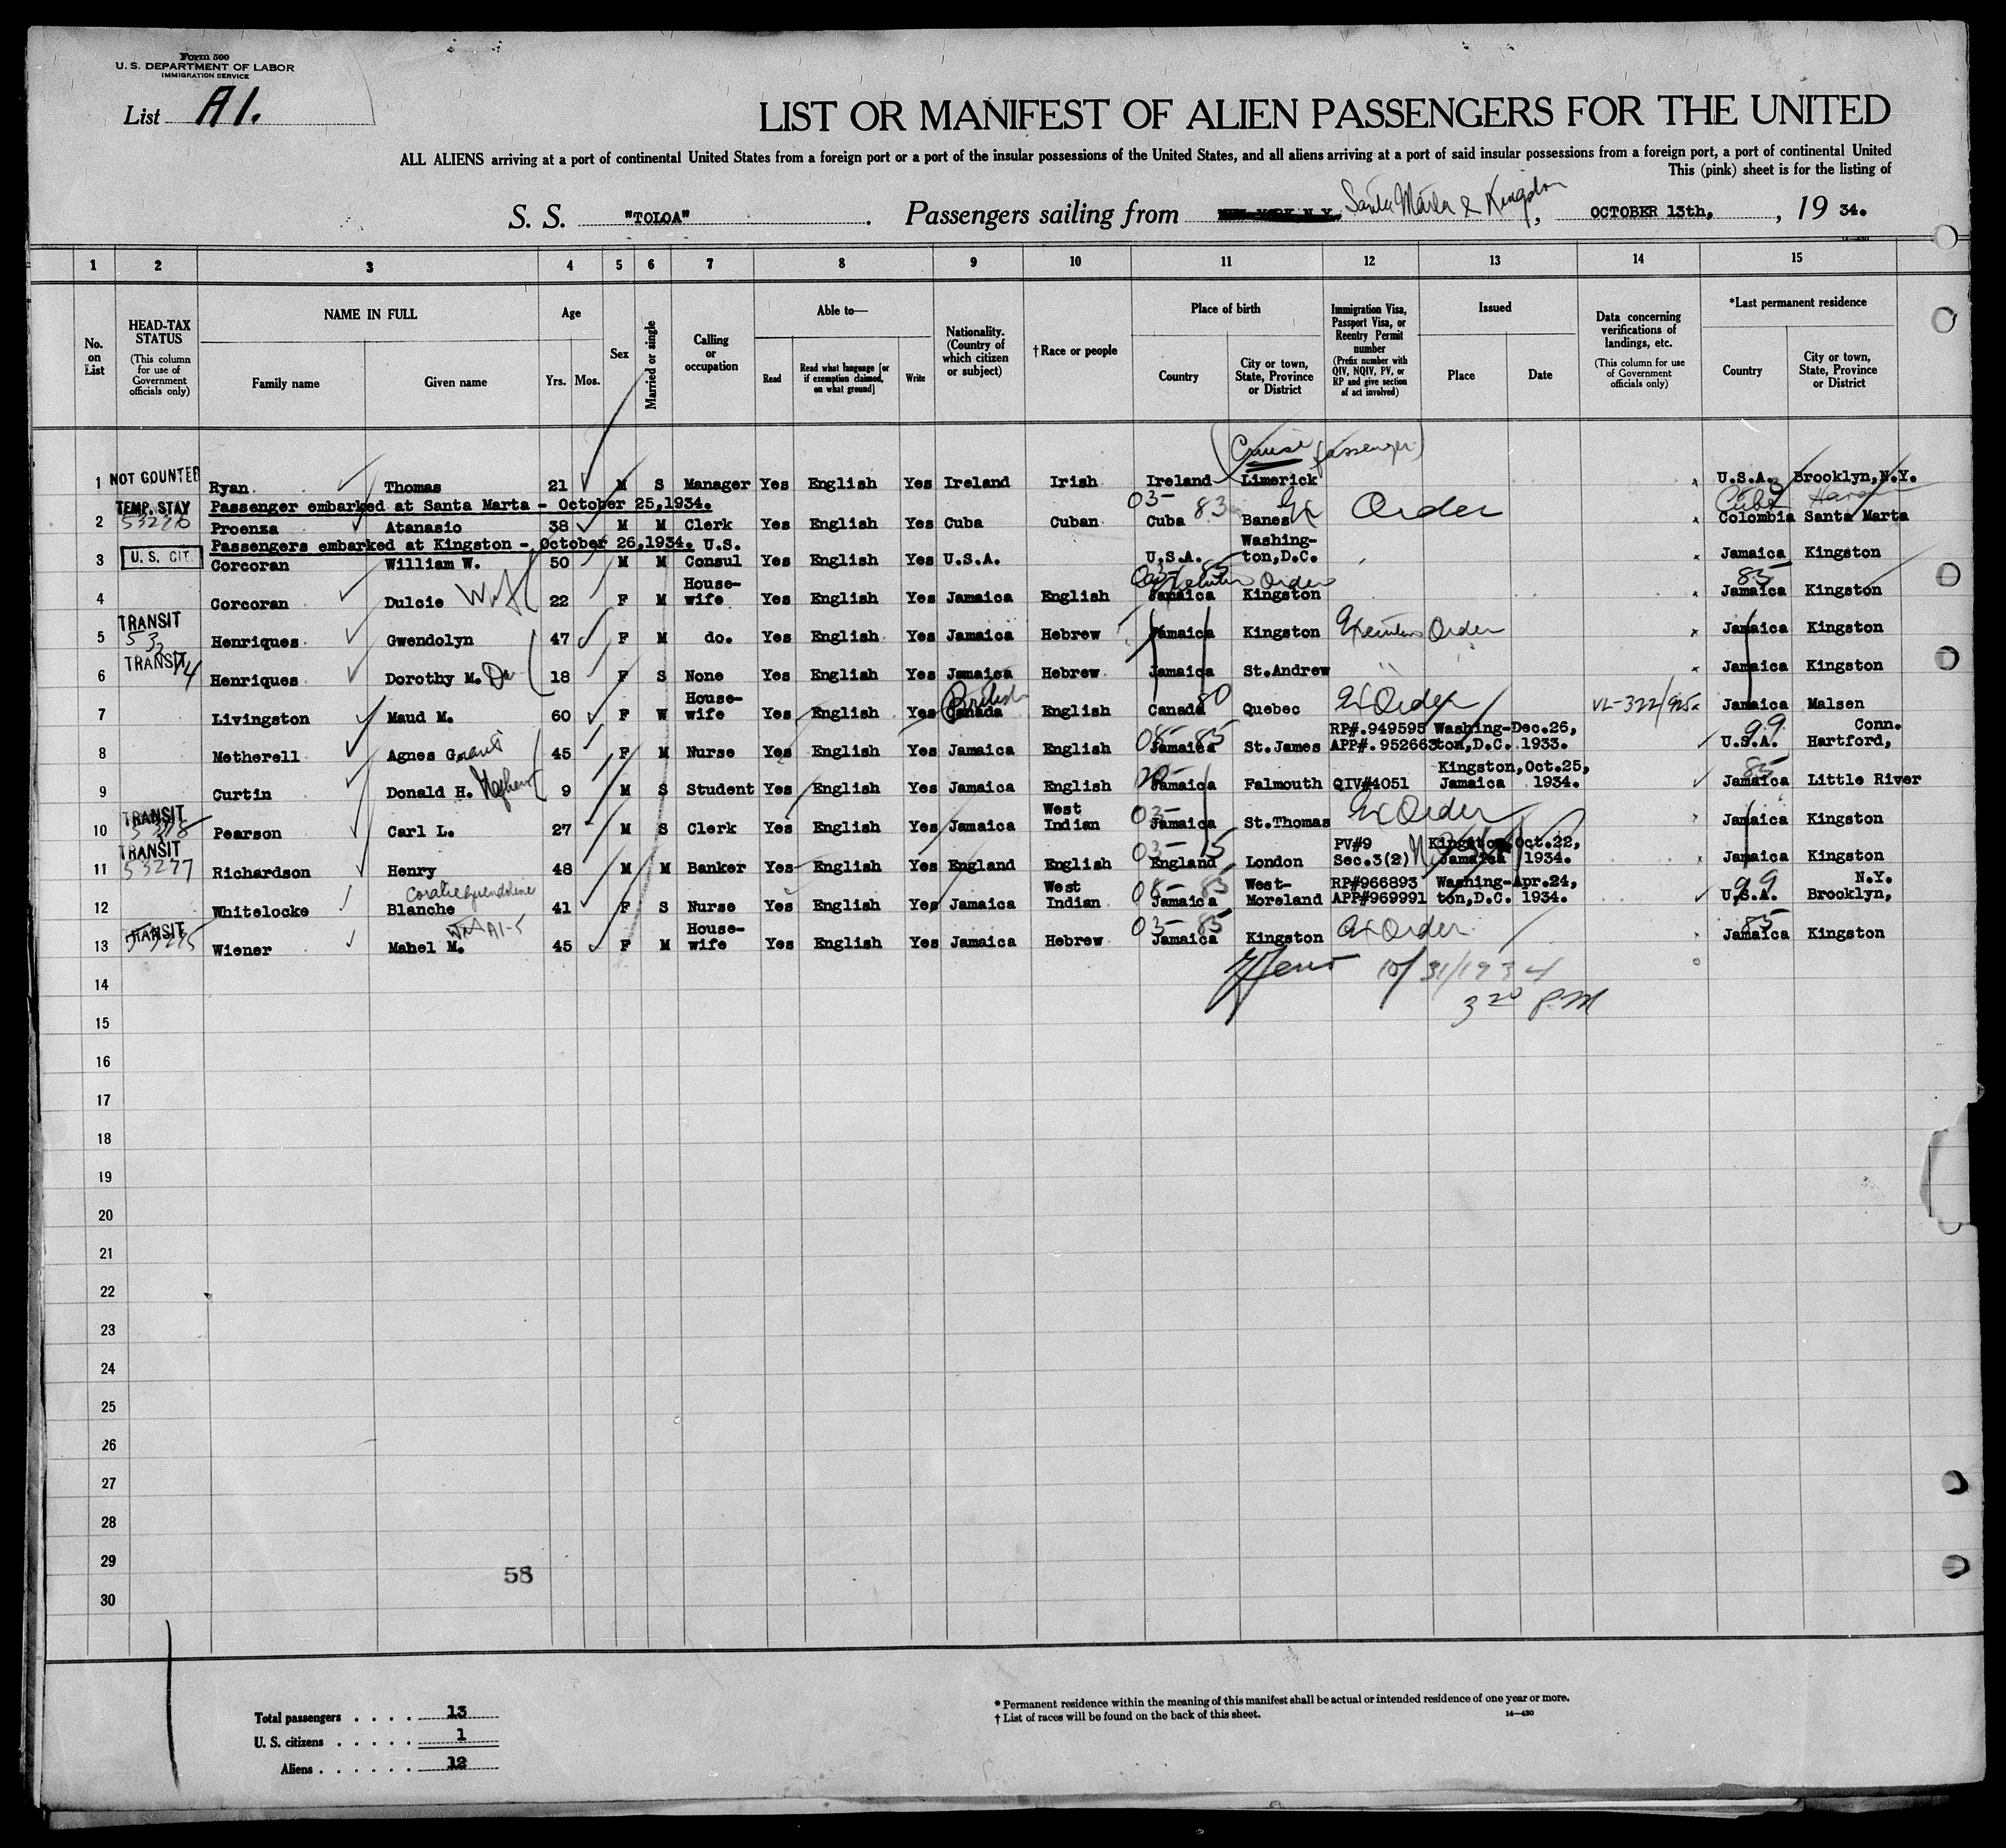 Form 500
U. S. DEPARTMENT OF LABOR
IMMIGRATION SERVICE
List A1.
LIST OR MANIFEST OF ALIEN PASSENGERS FOR THE UNITED
ALL ALIENS arriving at a port of continental United States from a foreign port or a port of the insular possessions of the United States, and all aliens arriving at a port of said insular possessions from a foreign port, a port of continental United
This (pink) sheet is for the listing of
S. S. "TOLOA". Passengers sailing from NEW YORK N.Y. Santa Marta & Kingston, OCTOBER 13th, , 19 34.
1 2 3 4 5 6 7 8 9 10 11 12 13 14 15
No. on List
HEAD-TAX STATUS (This column for use of Government officials only)
NAME IN FULL
Family name Given name
Age
Yrs. Mos.
Sex
Married or single
Calling or occupation
Able to—
Read Read what language [or if exemption claimed, on what ground] Write
Nationality. (Country of which citizen or subject)
† Race or people
Place of birth
Country City or town, State, Province or District
Immigration Visa, Passport Visa, or Reentry Permit number (Prefix number with QIV, NQIV, PV, or RP and give section of act involved)
Issued
Place Date
Data concerning verifications of landings, etc. (This column for use of Government officials only)
*Last permanent residence
Country City or town, State, Province or District
(Cruise passenger)
1 NOT COUNTED Ryan Thomas 21 M S Manager Yes English Yes Ireland Irish Ireland Limerick U.S.A. Brooklyn,N.Y.
Passenger embarked at Santa Marta - October 25,1934.
03- 83 Cuba
2 TEMP. STAY 53276 Proenza Atanasio 38 M M Clerk Yes English Yes Cuba Cuban Cuba Banes Ex Order Colombia Santa Marta
Passengers embarked at Kingston - October 26,1934.
3 U. S. CIT. Corcoran William W. 50 M M U.S. Consul Yes English Yes U.S.A. U.S.A. Washing-ton,D.C. Jamaica Kingston
4 Corcoran Dulcie Wf 22 F M House-wife Yes English Yes Jamaica English Jamaica Kingston Order 85 Jamaica Kingston
5 TRANSIT Henriques Gwendolyn 47 F M do. Yes English Yes Jamaica Hebrew Jamaica Kingston Executive Order Jamaica Kingston
6 TRANSIT Henriques Dorothy M. Da 18 F S None Yes English Yes Jamaica Hebrew Jamaica St.Andrew " " Jamaica Kingston
7 Livingston Maud M. 60 F W House-wife Yes English Yes Canada British English Canada 80 Quebec Ex Order VL-322/925 Jamaica Malsen
8 Metherell Agnes G. aunt 45 F M Nurse Yes English Yes Jamaica English 08- 85 Jamaica St.James RP#.949595 APP#.952663 Washing-ton,D.C. Dec.26, 1933. 99 U.S.A. Hartford, Conn.
9 Curtin Donald H. Nephew 9 M S Student Yes English Yes Jamaica English Jamaica Falmouth QIV#4051 Kingston, Jamaica Oct.25, 1934. 85 Jamaica Little River
10 TRANSIT 53278 Pearson Carl L. 27 M S Clerk Yes English Yes Jamaica West Indian 03- Jamaica St.Thomas Ex Order Jamaica Kingston
11 TRANSIT 53277 Richardson Henry 48 M M Banker Yes English Yes England English 03- 15 England London PV#9 Sec.3(2) Kingston, Jamaica Oct.22, 1934. Jamaica Kingston
12 Whitelocke Blanche Coralie Guendoline 41 F S Nurse Yes English Yes Jamaica West Indian 08- 85 Jamaica West-Moreland RP#966893 APP#969991 Washing-ton,D.C. Apr.24, 1934. 99 U.S.A. Brooklyn, N.Y.
13 TRANSIT 53275 Wiener Mahel M. A1-5 45 F M House-wife Yes English Yes Jamaica Hebrew 03- 85 Jamaica Kingston Ex Order 85 Jamaica Kingston
14 10/31/1934
15 3 20 P.M
16
17
18
19
20
21
22
23
24
25
26
27
28
29
58
30
Total passengers . . . . 13
U. S. citizens . . . . . 1
Aliens . . . . . . 12
* Permanent residence within the meaning of this manifest shall be actual or intended residence of one year or more.
† List of races will be found on the back of this sheet. 14—430